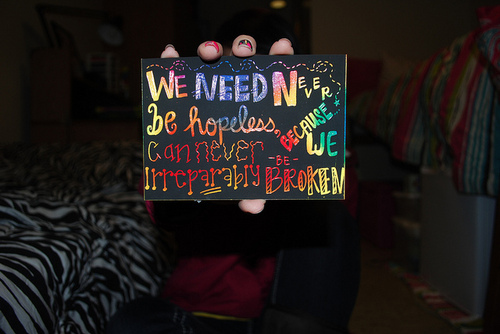 WE NEED NEVER
be hopeless, BECAUSE WE
can never -BE-
Irreparably BROKEN